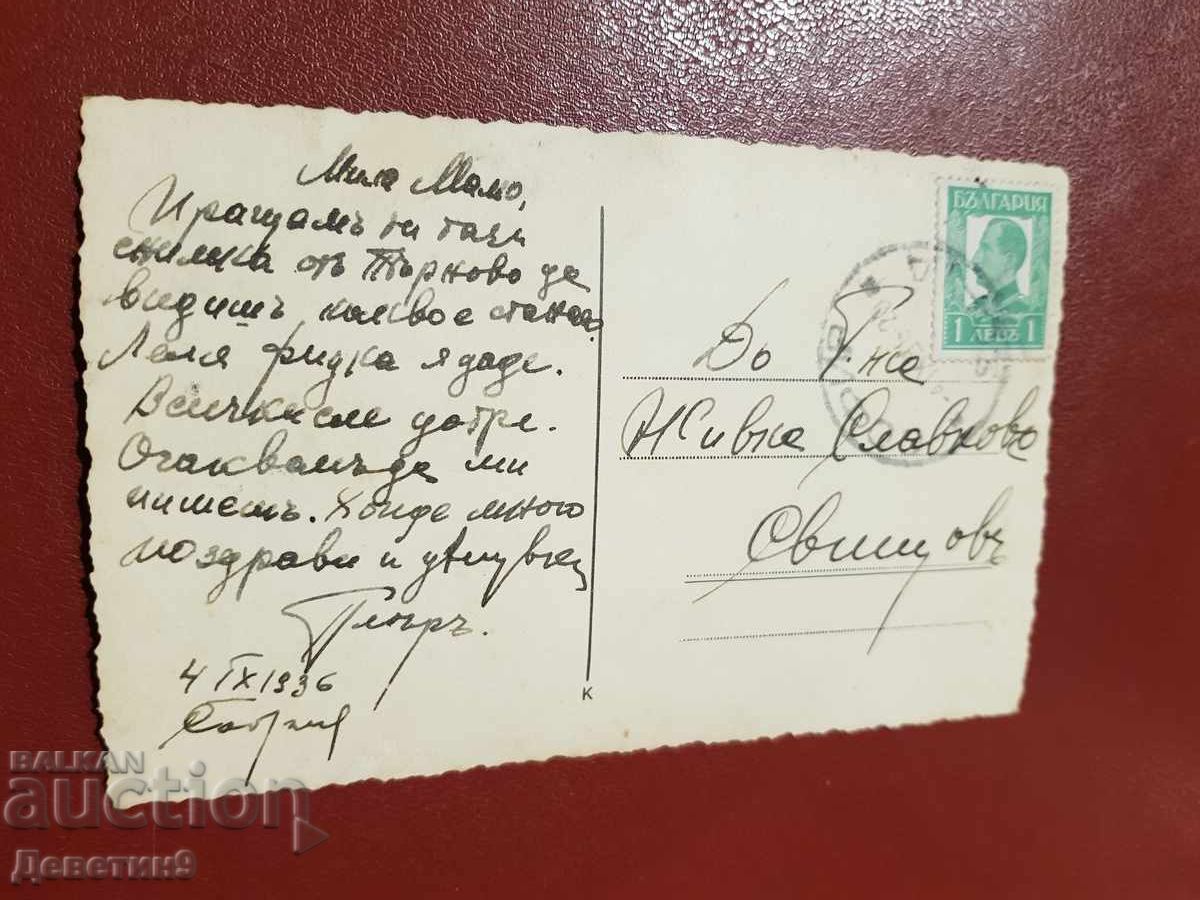 Мила Мамо,
Пращамъ ти тази
снимка отъ Търново да
видишъ какво е станала
Леля Фидка я даде.
Всички сме добре.
Очаквамъ да ми
пишешъ. много
поздрави и целувки
Петъръ.
4 IX 1936
София
К
БЪЛГАРИЯ
1 ЛЕВЪ 1
До Г-жа
Живка Славкова
Свищовъ
BALKAN
auction
Деветин9